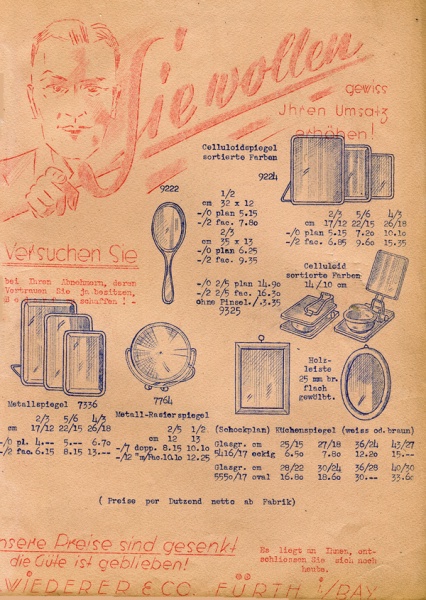 Sie wollen
gewiss
Jhren Umsatz
erhöhen!
Celluloidspiegel
sortierte Farben
9224
9222
1/2
cm 32 x 12
-/0 plan 5.15
-/2 fac. 7.80
2/3
cm 35 x 13
-/0 plan 6.25
-/2 fac. 9.35
2/3 5/6 4/3
cm 17/12 22/15 26/18
-/0 plan 5.15 7.20 10.10
-/2 fac. 6.85 9.60 15.35
Versuchen Sie
bei Ihren Abnehmern, deren
Vertrauen Sie ja besitzen,
schaffen! -
-/0 2/5 plan 14.90
-/2 2/5 fac. 16.30
ohne Pinsel./.3.35
9325
Celluloid
sortierte Farben
14/10 cm
Holz-
leiste
25 mm br.
flach
gewölbt.
Metallspiegel 7336
2/3 5/6 4/3
cm 17/12 22/15 26/18
-/0 pl. 4.-- 5.-- 6.70
-/2 fac. 6.15 8.15 13.--
7764
Metall-Rasierspiegel
2/5 1/2
cm 12 13
-/7 dopp. 8.15 10.10
-/12 "m/Fac. 10.10 12.25
(Schockplan) Küchenspiegel (weiss od. braun)
Glasgr. cm 25/15 27/18 36/24 43/27
5416/17 eckig 6.50 7.80 12.20 15.--
Glasgr. cm 28/22 30/24 36/28 40/30
5550/17 oval 16.80 18.60 30.-- 33.60
( Preise per Dutzend netto ab Fabrik)
nsere Preise sind gesenkt
die Güte ist geblieben!
Es liegt an Ihnen, ent-
schliessen Sie sich noch
heute.
WIEDERER & CO. FÜRTH i/BAY.